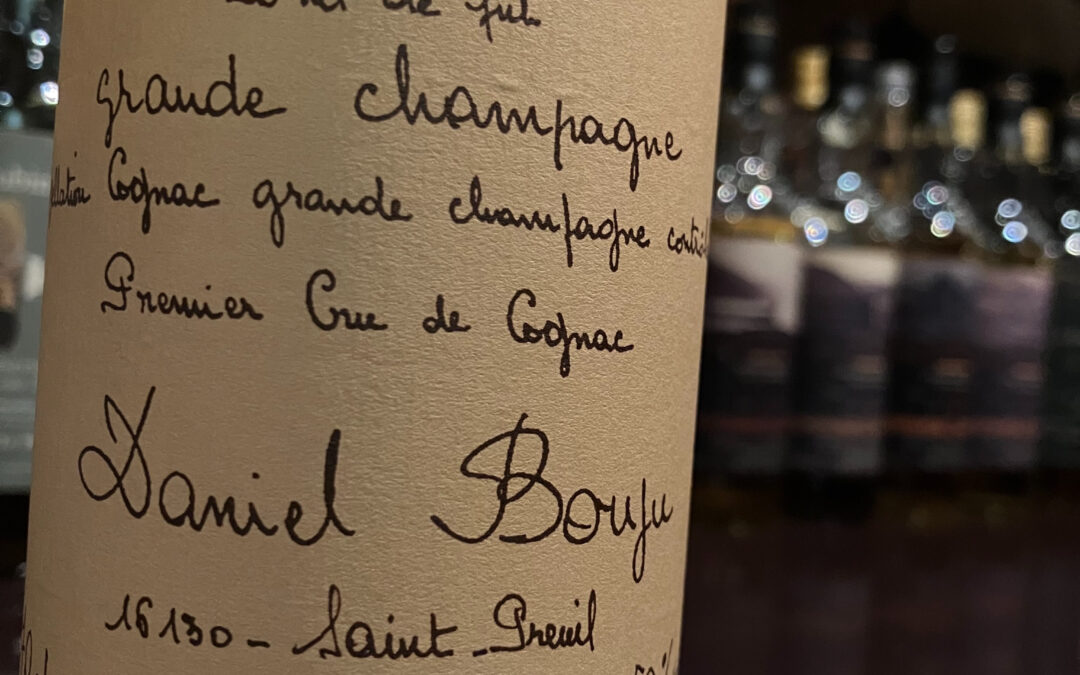 de fut
grande champagne
Cognac grande champagne
Premier Cru de Cognac
Daniel Bouju
16130 - Saint-Preuil